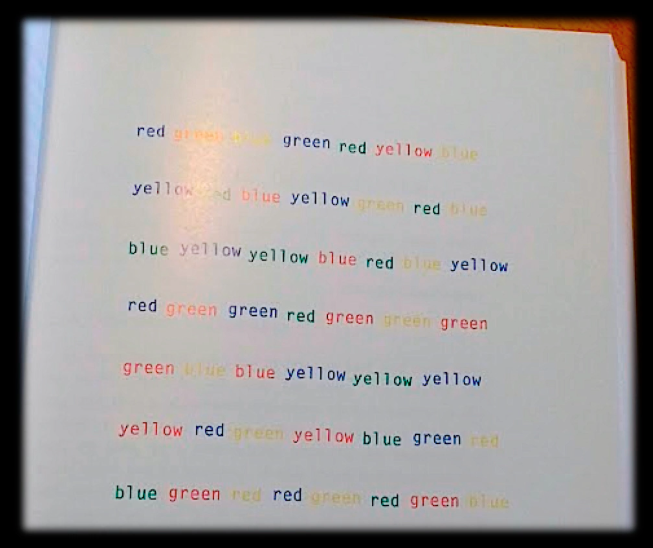 red green blue green red yellow blue
yellow red blue yellow green red blue
blue yellow yellow blue red blue yellow
red green green red green green green
green blue blue yellow yellow yellow
yellow red green yellow blue green red
blue green red red green red green blue